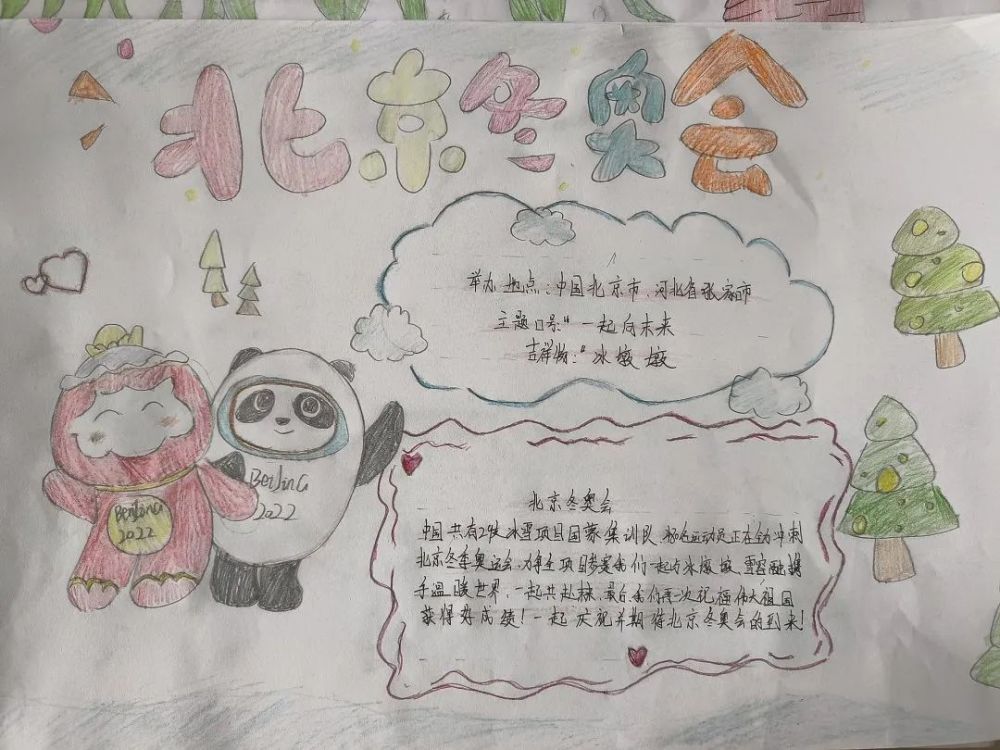 北京冬奥会
举办地点：中国北京市、河北省张家口市
主题口号"一起向未来
吉祥物："冰墩墩
BeiJinG
2022
BeiJinG
2022
北京冬奥会
中国共有2支冰雪项目国家集训队 名运动员正在全力冲刺
北京冬季奥运会，力争全项目参赛我们一起为冰墩墩、雪容融携
手温暖世界，一起共赴 最后我们再一次祝福伟大祖国
获得好成绩！一起庆祝并期待北京冬奥会的到来！